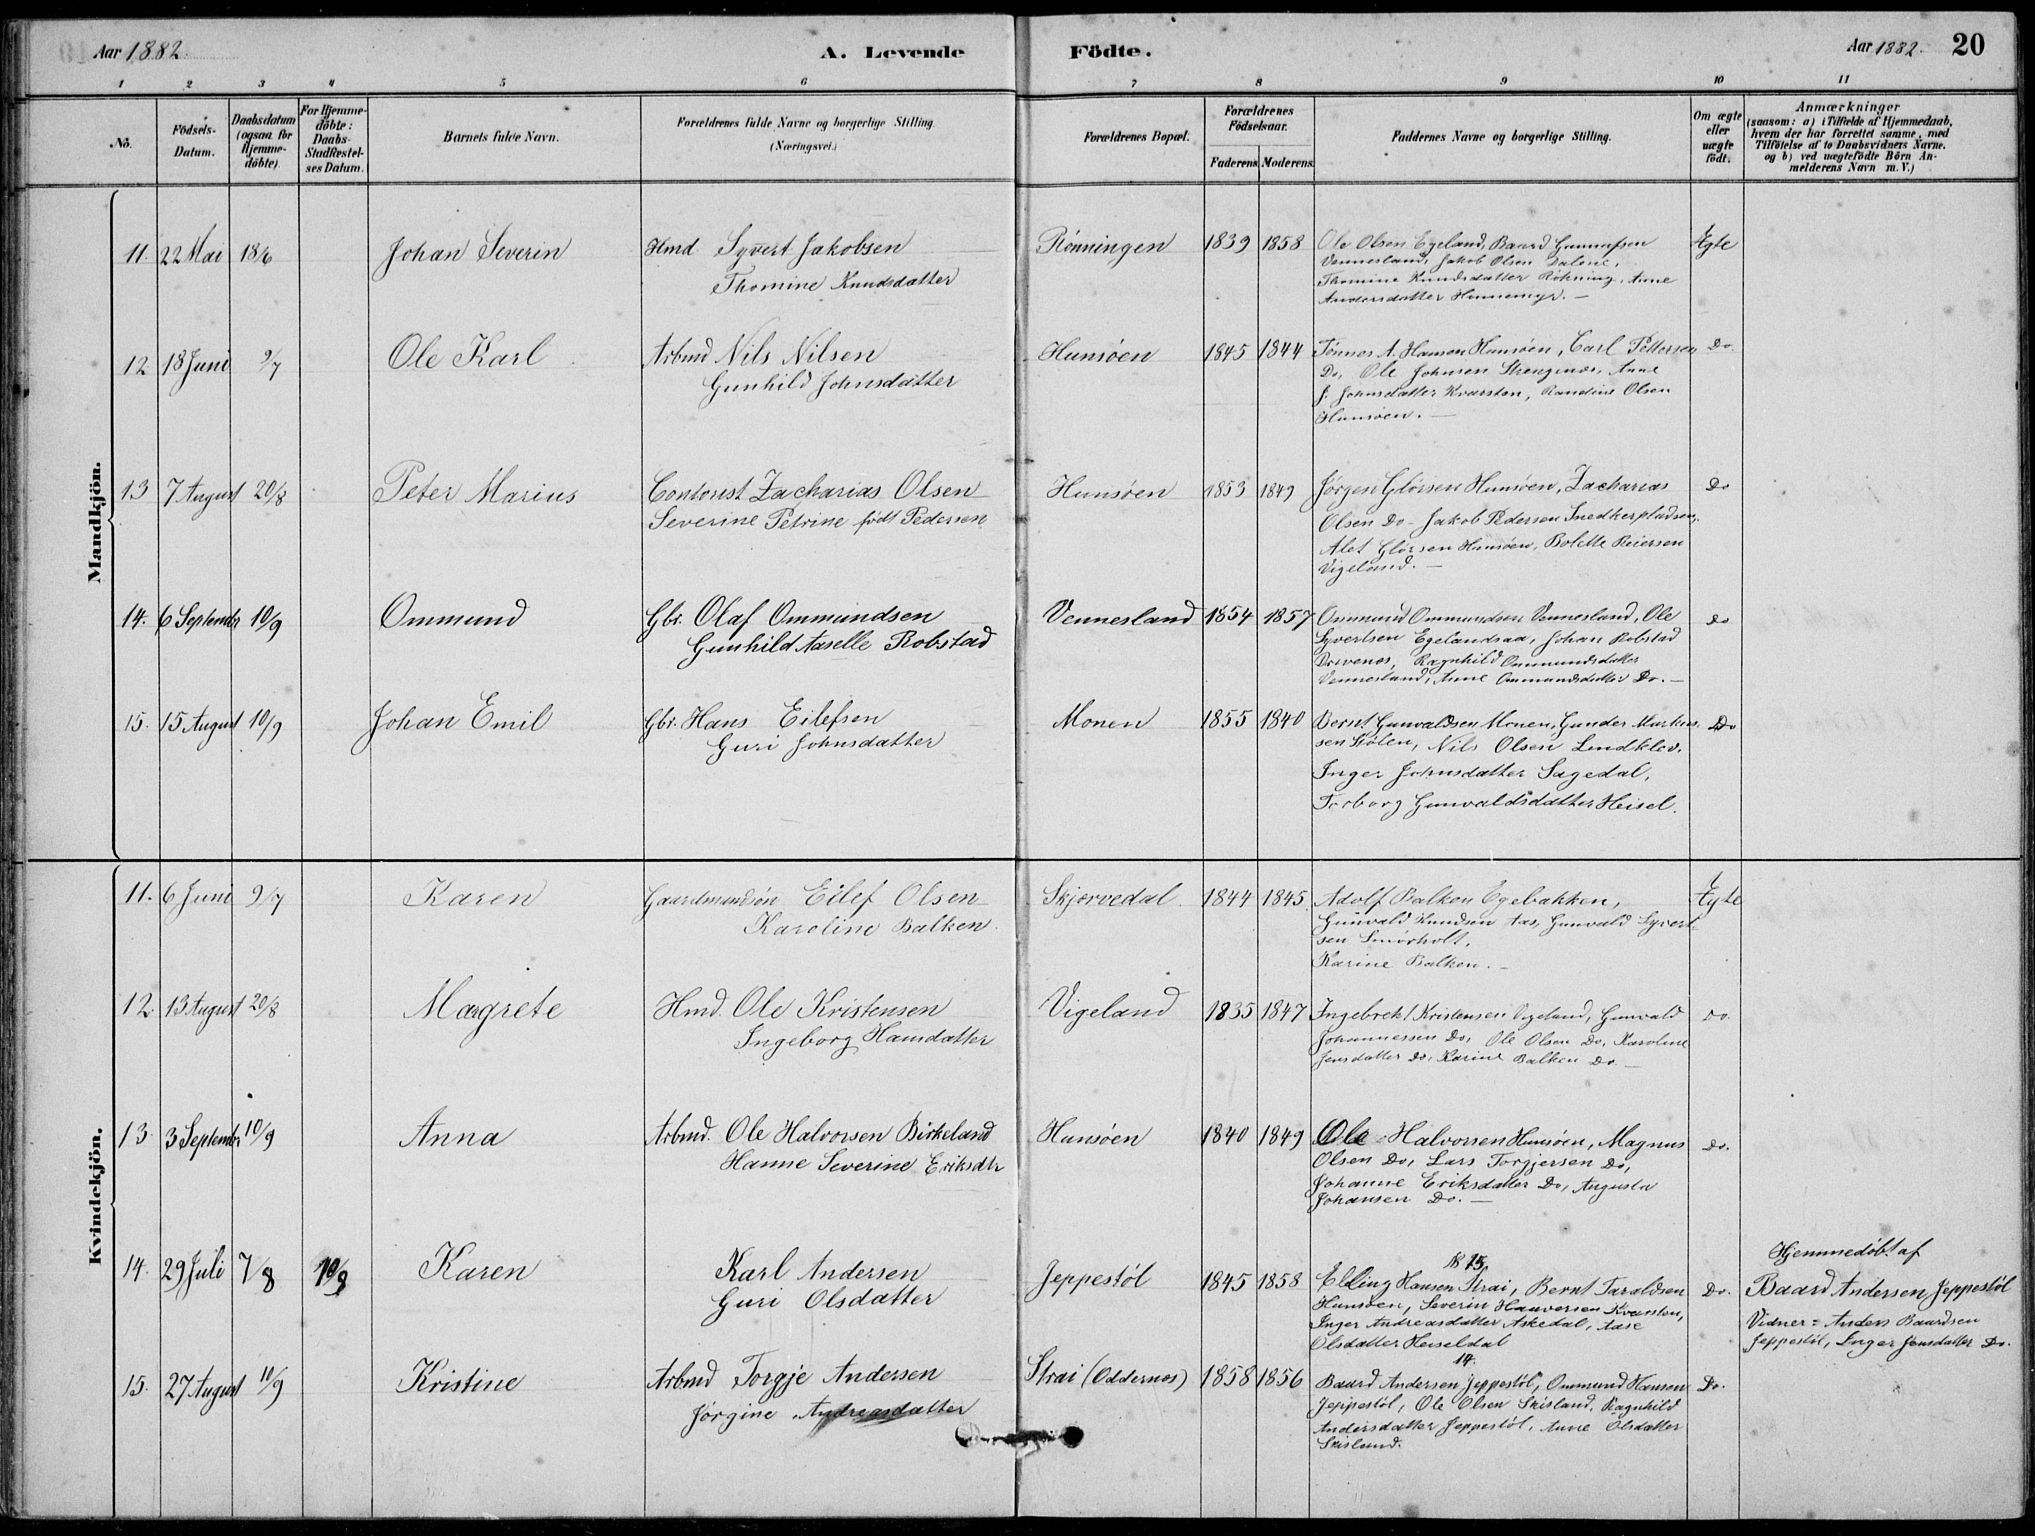 Aar 1882.
A. Levende
Födte.
Aar 1882.
20
1 2 3 4 5 6 7 8 9 10 11
No.
Födsels-
Datum.
Daabsdatum
(ogsaa for
Hjemme-
döbte)
For Hjemme-
döbte:
Daabs-
Stadfæstel-
ses Datum.
Barnets fulde Navn.
Forældrenes fulde Navne og borgerlige Stilling.
(Næringsvei.)
Forældrenes Bopæl.
Forældrenes
Födselsaar.
Faderens Moderens
Faddernes Navne og borgerlige Stilling.
Om ægte
eller
uægte
födt.
Anmærkninger
(saasom: a) i Tilfælde af Hjemmedaab,
hvem der har forrettet samme, med
Tilföielse af to Daabsvidners Navne.
og b) ved uægtefödte Börn An-
melderens Navn m. V.)
Mandkjön.
11. 22 Mai 18/6 Johan Severin Hmd Syvert Jakobsen
Thomine Knudsdatter
Rønningen 1839 1858
Ole Olsen Egeland, Baard Gunnufsen
Vennesland, Jakob Olsen Dalene,
Thomine Knudsdatter Røkning, Anne
Andersdatter Hunnemyr. —
Ægte
12 18 Juni 9/7 Ole Karl Arbmd Nils Nilsen
Gunhild Johnsdatter
Hunsøen 1845 1844
Tønnes A. Hansen Hunsøen, Carl Pettersen
Do, Ole Johnsen Strengenæs, Anne
J. Johnsdatter Kvarsten, Randine Olsen
Hunsøen. —
Do.
13 7 August 20/8 Peter Marius Contorist Zacharias Olsen
Severine Petrine født Pedersen
Hunsøen 1853 1849
Jørgen Glørsen Hunsøen, Zacharias
Olsen Do - Jakob Pedersen Snedkerpladsen,
Alet Glørsen Hunsøen, Bolette Reiersen
Vigeland. —
Do
14. 6 September 10/9 Ommund Gbr. Olaf Ommundsen
Gunhild Aaselle Robstad
Vennesland 1854 1857
Ommund Ommundsen Vennesland, Ole
Syvertsen Egelandsaa, Johan Robstad
Drivenes, Ragnhild Ommundsdatter
Vennesland, Anne Ommundsdatter Do. —
Do
15. 15 August 10/9 Johan Emil Gbr. Hans Eilefsen
Guri Johnsdatter
Monen 1855 1840
Bernt Gunvaldsen Monen, Gunder Markus
sen Stølen, Nils Olsen Lindklev.
Inger Johnsdatter Sagedal,
Torborg Gunvaldsdatter Heisel.
Do
Kvindekjön.
11. 6 Juni 9/7 Karen Gaardmandsøn Eilef Olsen
Karoline Balken.
Skjærvedal 1844 1845
Adolf Balken Egebakken,
Gunvald Knudsen Aas, Gunvald Syvert
sen Smørholt,
Karine Balken. —
Ægte
12. 13 August 20/8 Margrete Hmd. Ole Kristensen
Ingeborg Hansdatter
Vigeland 1835 1847
Ingebrekt Kristensen Vigeland, Gunvald
Johannessen Do, Ole Olsen Do, Karoline
Jensdatter Do, Karine Balken Do. —
Do.
13 3 September 10/9 Anna Arbmd. Ole Halvorsen Birkeland
Hanne Severine Eriksdtr
Hunsøen 1840 1849
Ole Halvorsen Hunsøen, Magnus
Olsen Do, Lars Torgjersen Do,
Johanne Eriksdatter Do, Augusta
Johansen Do. —
Do.
14. 29 Juli 7/8 10/9 Karen Karl Andersen
Guri Olsdatter
Jeppestøl 1845 1858
15,
Elling Hansen Strai, Bernt Taraldsen
Hunsøen, Severin Hauversen Kvarsten,
Inger Andreasdatter Askedal, Aase
Olsdatter Heiseldal
Do.
Hjemmedøbt af
Baard Andersen Jeppestøl
Vidner = Anders Baardsen
Jeppestøl, Inger Jensdatter Do.
15. 27 August 10/9 Kristine Arbmd Torgje Andersen
Jørgine Andreasdatter
Strai (Oddernes) 1858 1856
14.
Baard Andersen Jeppestøl, Ommund Hansen
Jeppestøl, Ole Olsen Skisland, Ragnhild
Andersdatter Jeppestøl, Anne Olsdatter
Skisland.
Do.